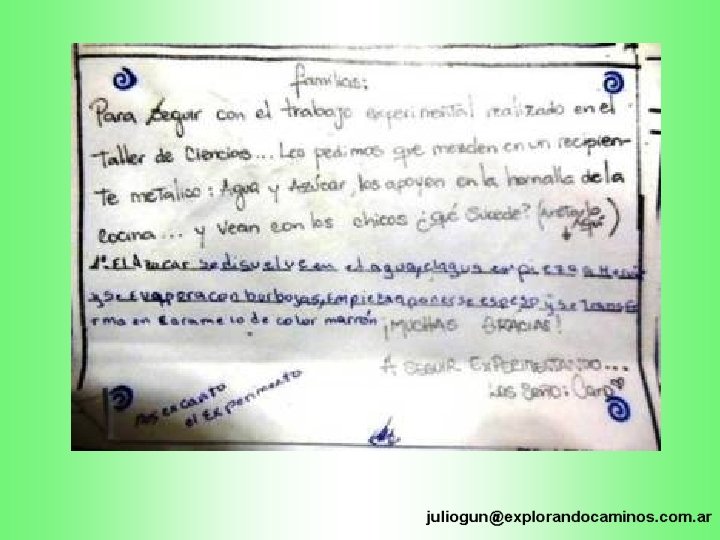 familias:
Para seguir con el trabajo experimental realizado en el
taller de Ciencias... Les pedimos que mezclen en un recipien-
te metalico: Agua y Azúcar, los apoyen en la hornalla de la
cocina... y vean con los chicos ¿qué sucede? (Anotarlo Aquí)
1º. EL AzucAr se disuelve en el agua, el agua empieza a
y se evapora con burbujas, Empieza a ponerse espeso y se transfo
rma en caramelo de color marrón ¡MUCHAS GRACIAS!
A SEGUIR EXPERIMENTANDO...
Las Seño: Caro
nos encanto
el experimento
juliogun@explorandocaminos.com.ar